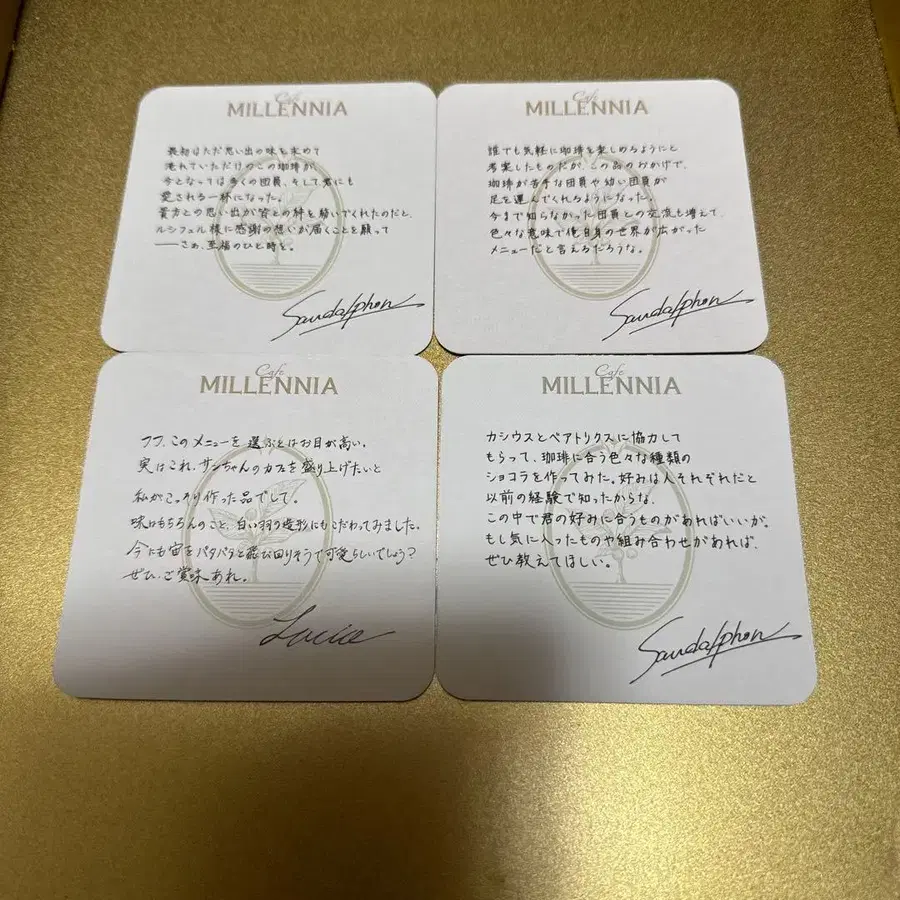 Cafe
MILLENNIA
最初はただ思い出の味を求めて
淹れていただけのこの珈琲が、
今となっては多くの団員、そして君にも
愛される一杯になった。
貴方との思い出が皆との絆を紡いでくれたのだと、
ルシフェル様に感謝の想いが届くことを願って
――さあ、至福のひと時を。
Sandalphon
Cafe
MILLENNIA
誰でも気軽に珈琲を楽しめるようにと
考案したものだが、この品のおかげで、
珈琲が苦手な団員や幼い団員が
足を運んでくれるようになった。
今まで知らなかった団員との交流も増えて、
色々な意味で俺自身の世界が広がった
メニューだと言えるだろうな。
Sandalphon
Cafe
MILLENNIA
フフ、このメニューを選ぶとはお目が高い。
実はこれ、サンちゃんのカフェを盛り上げたいと
私がこっそり作った品でして。
味はもちろんのこと、白い羽の造形にもこだわってみました。
今にも宙をパタパタと飛び回りそうで可愛らしいでしょう?
ぜひ、ご賞味あれ。
Lucio
Cafe
MILLENNIA
カシウスとベアトリクスに協力して
もらって、珈琲に合う色々な種類の
ショコラを作ってみた。好みは人それぞれだと
以前の経験で知ったからな。
この中で君の好みに合うものがあればいいが。
もし気に入ったものや組み合わせがあれば、
ぜひ教えてほしい。
Sandalphon